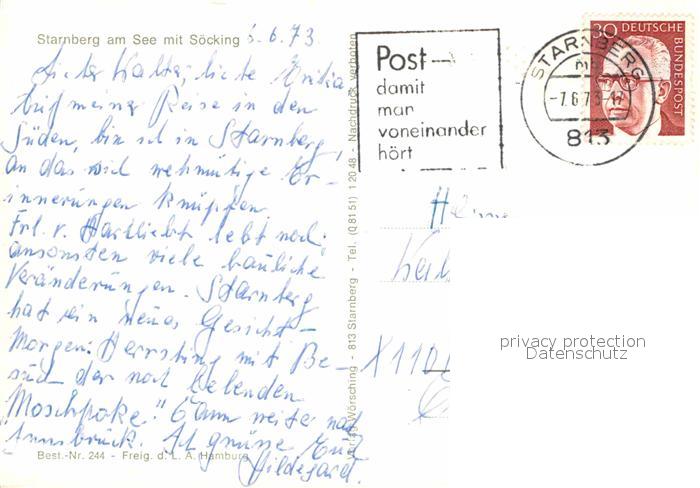 Starnberg am See mit Söcking
6.6.73
Lieber Walter, liebe
Auf meiner Reise in den
Süden, bin ich in Starnberg,
an das sich wehmütige Er-
innerungen knüpfen.
Frl. v. Hartlieb lebt noch,
ansonsten viele bauliche
Veränderungen. Starnberg
hat ein neues Gesicht –
Morgen: Herrsching mit Be-
such der noch lebenden
"Moschpoke." Dann weiter nach
Innsbruck. Es grüsse Euch
Hildegard.
Best.-Nr. 244 - Freig. d. L. A. Hamburg
Verlag Wörsching - 813 Starnberg - Tel. (0 81 51) 1 20 48 - Nachdruck verboten
Post-
damit
man
voneinander
hört
STARNBERG
mb
-7.6.73-
813
30 DEUTSCHE
BUNDESPOST
Herrn
X1101
privacy protection
Datenschutz